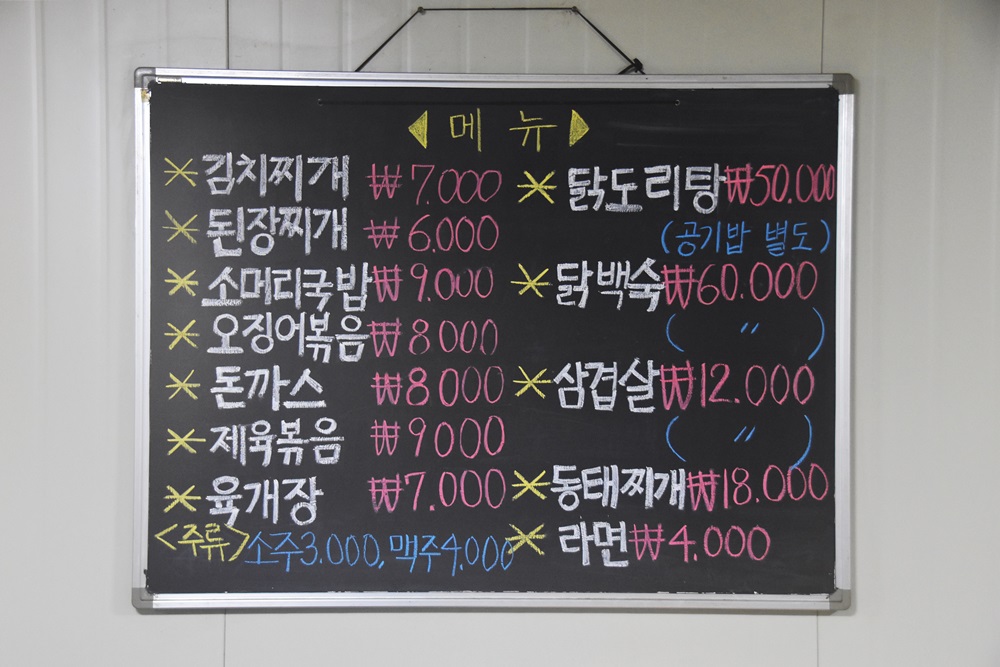 ◀ 메 뉴 ▶
* 김치찌개 ₩7.000
* 된장찌개 ₩6.000
* 소머리국밥 ₩9.000
* 오징어볶음 ₩8.000
* 돈까스 ₩8.000
* 제육볶음 ₩9000
* 육개장 ₩7.000
<주류> 소주3.000, 맥주4.000
* 닭도리탕 ₩50.000
(공기밥 별도)
* 닭백숙 ₩60.000
( 〃 )
* 삼겹살 ₩12.000
( 〃 )
* 동태찌개 ₩18.000
* 라면 ₩4.000